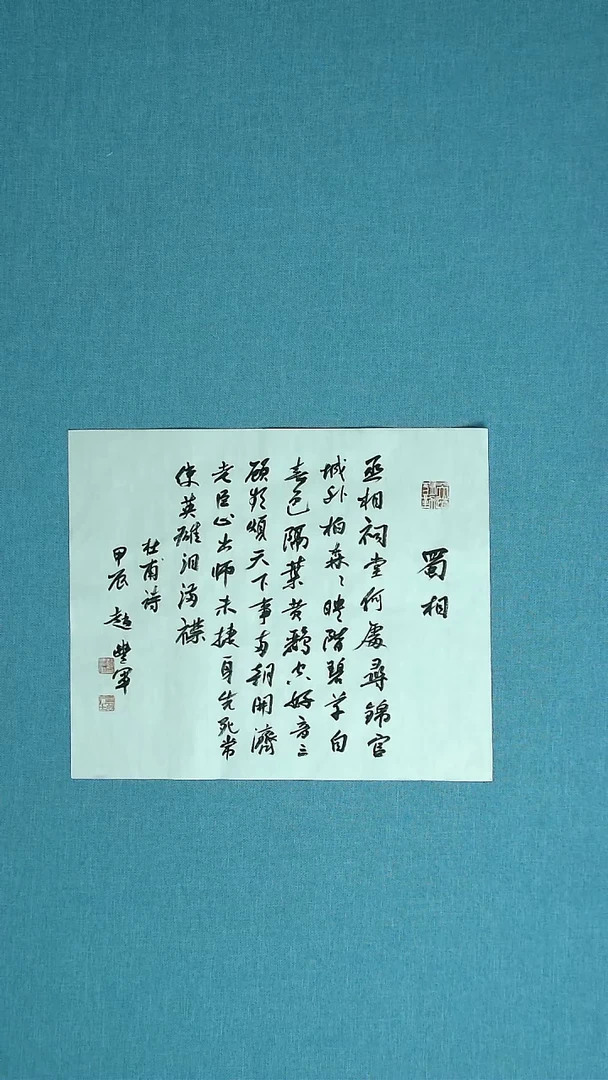 蜀相
丞相祠堂何處尋錦官
城外柏森〻映階碧草自
春色隔葉黄鸝空好音三
顧頻煩天下事兩朝開濟
老臣心出師未捷身先死常
使英雄泪满襟
杜甫诗
甲辰 趙豐軍